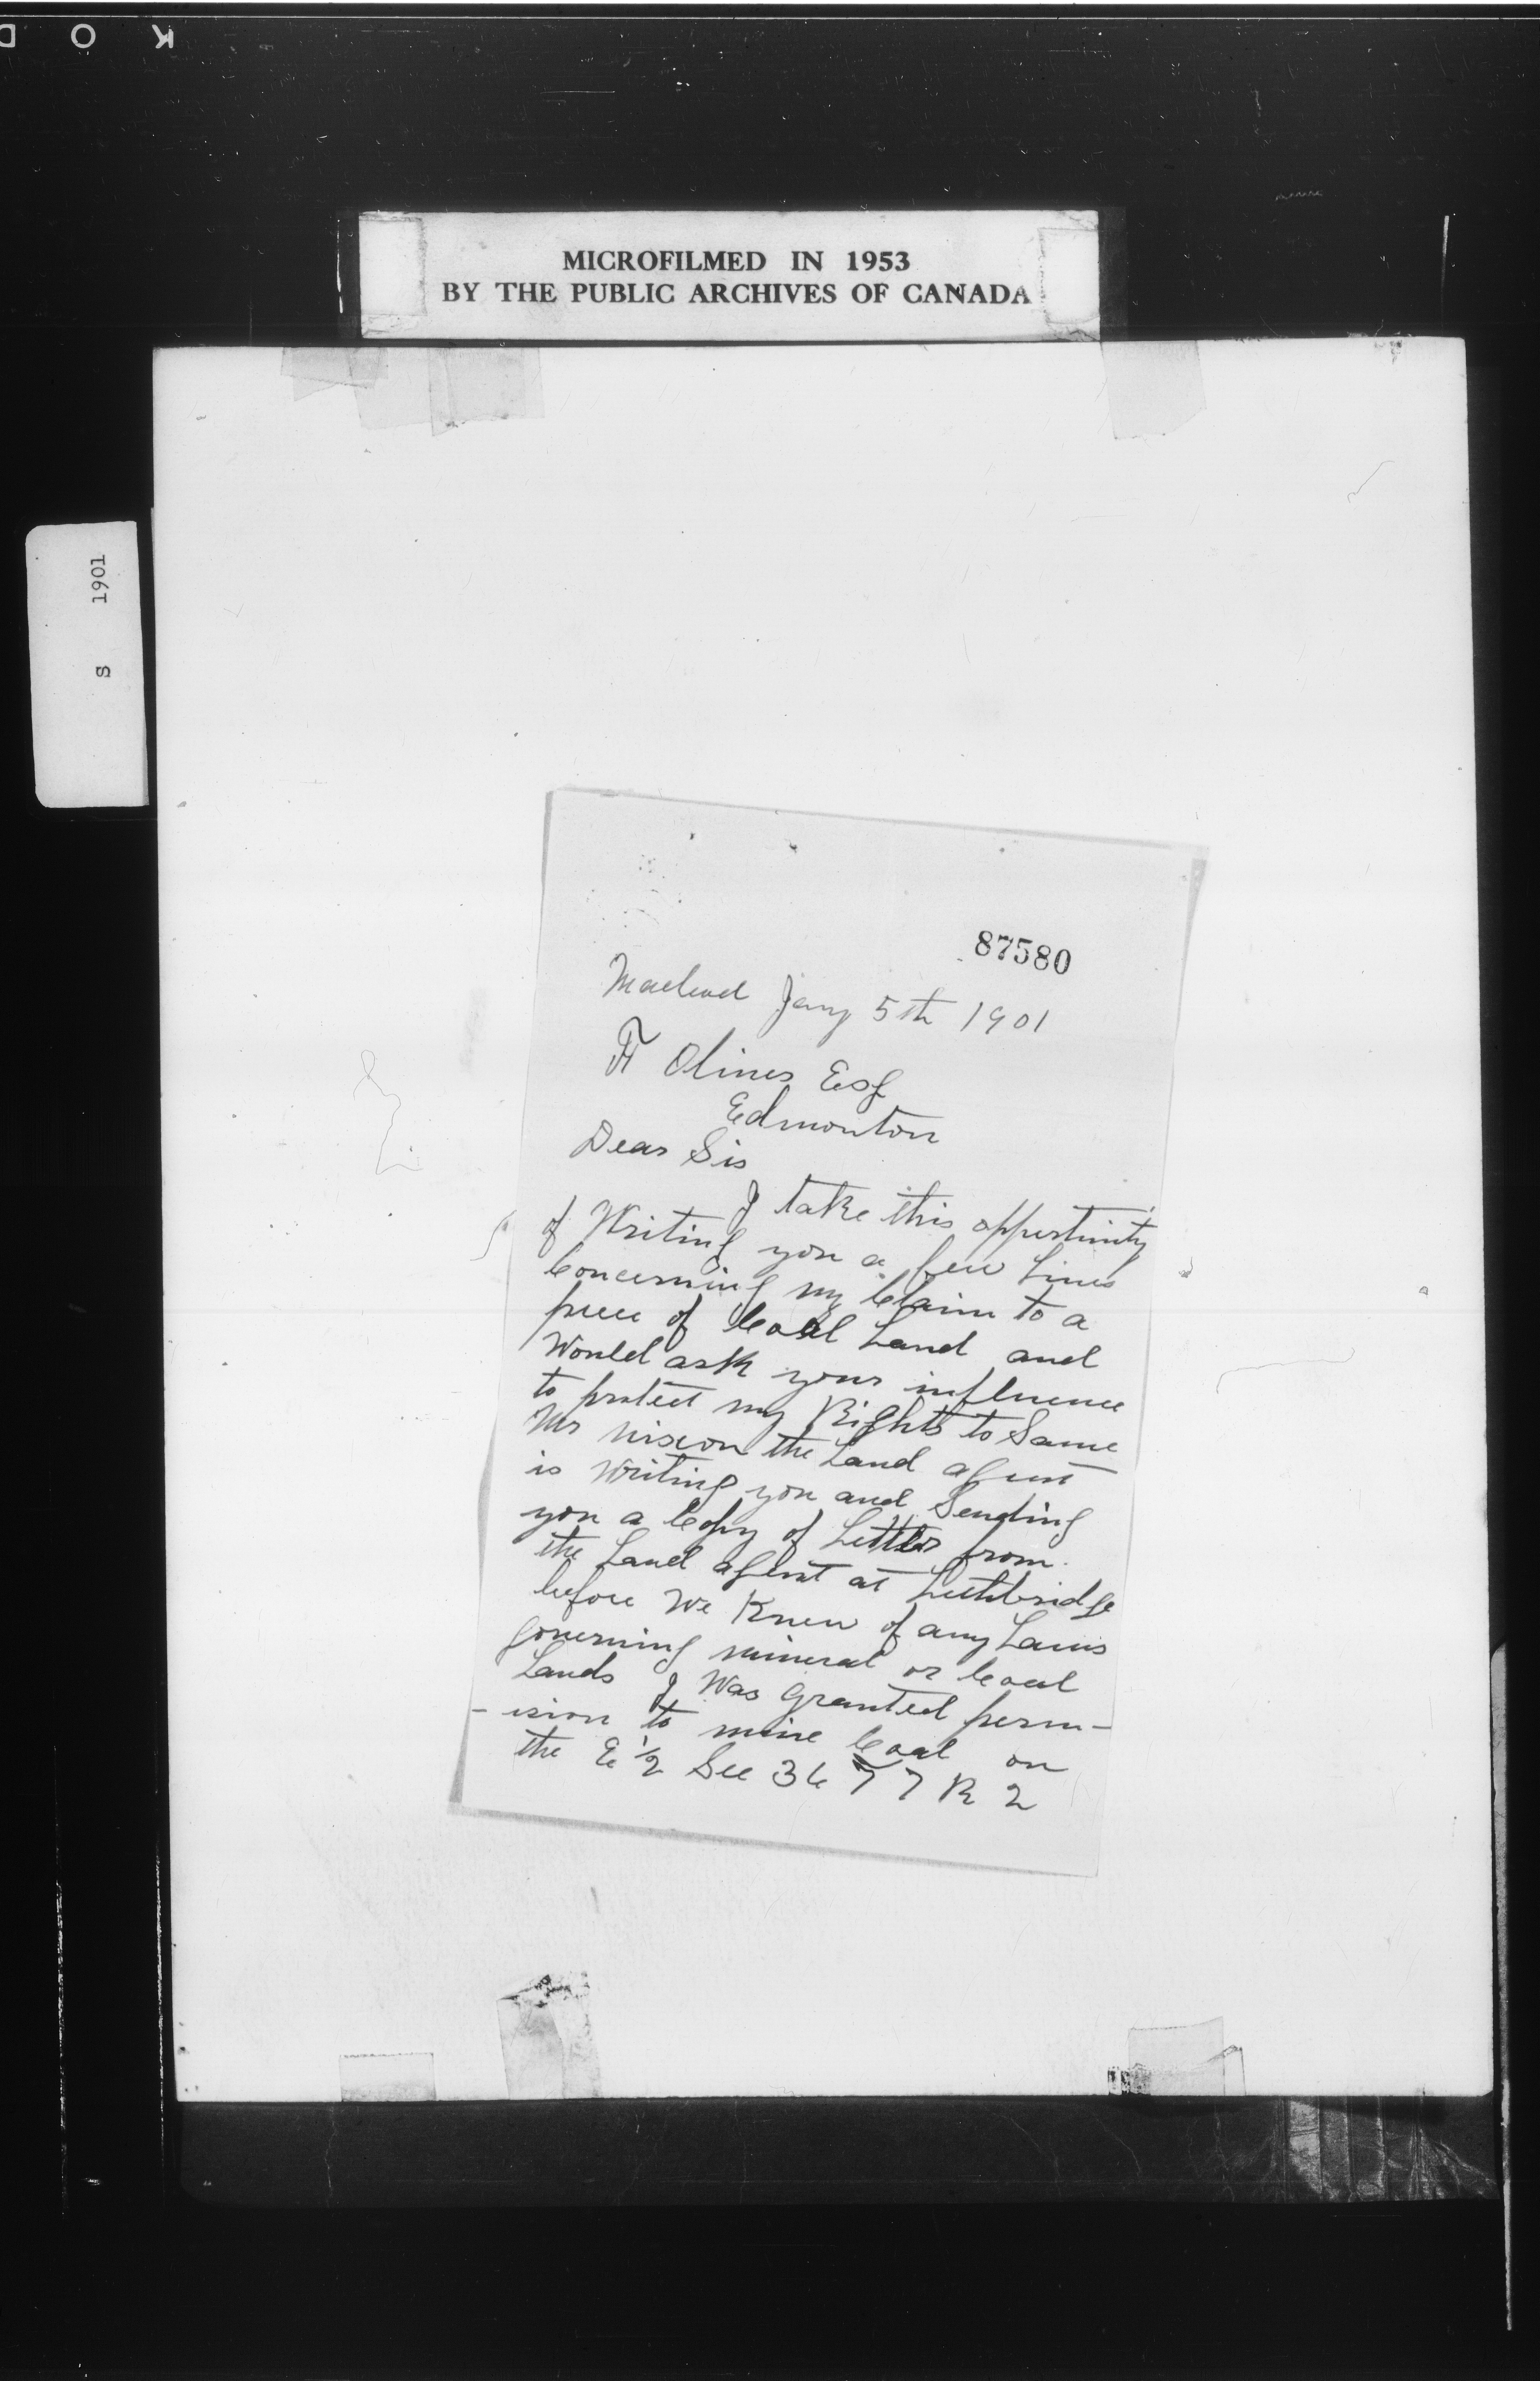 K O D
MICROFILMED IN 1953
BY THE PUBLIC ARCHIVES OF CANADA
S 1901
87580
Macleod Jany 5th 1901
F Oliver Esq
Edmonton
Dear Sir
I take this oppertunity
of Writing you a few Lines
Concerning my Claim to a
piece of Coal Land and
Would ask your influence
to protect my Rights to Same
Mr Nixon the Land agent
is Writing you and Sending
you a Copy of Letter from
the Land agent at Lethbridge
before We Knew of any Laws
governing mineral or Coal
Lands I Was granted perm-
-ision to mine Coal on
the E 1/2 Sec 36 T 7 R 2